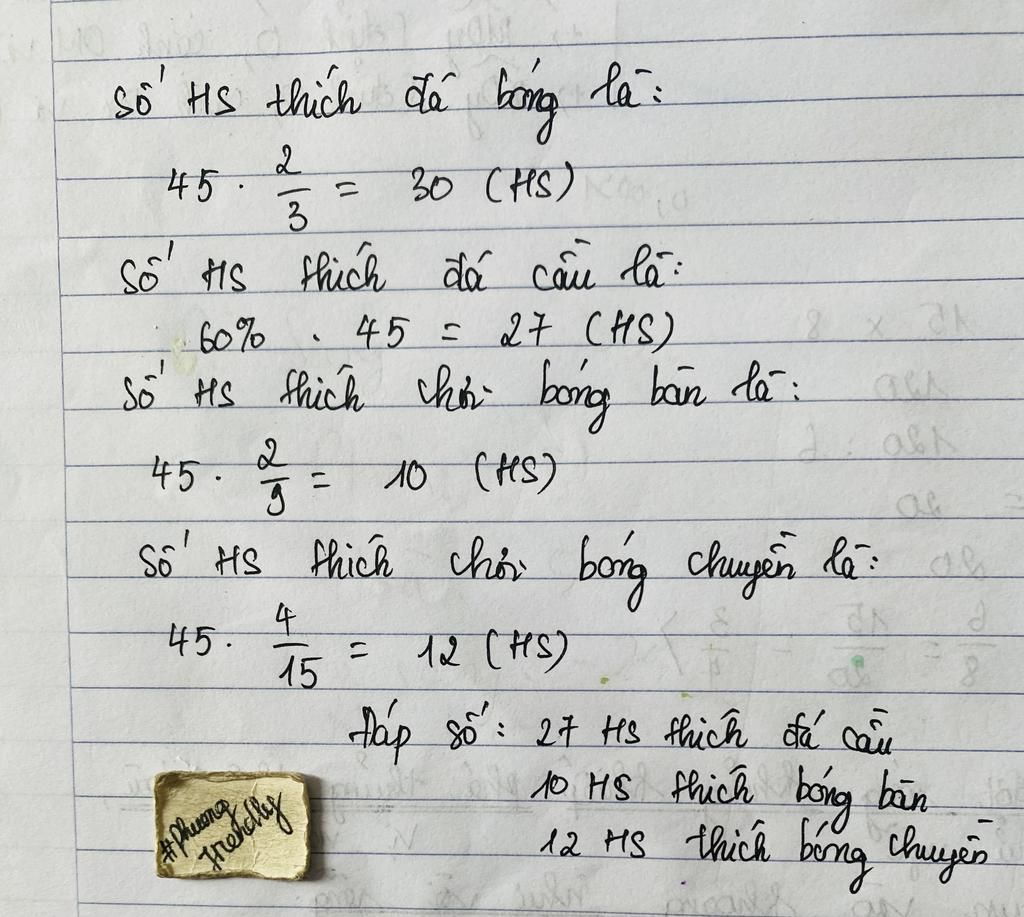 Số HS thích đá bóng là:
45 . 2/3 = 30 (HS)
Số HS thích đá cầu là:
60% . 45 = 27 (HS)
Số HS thích chơi bóng bàn là:
45 . 2/9 = 10 (HS)
Số HS thích chơi bóng chuyền là:
45 . 4/15 = 12 (HS)
Đáp số: 27 HS thích đá cầu
10 HS thích bóng bàn
12 HS thích bóng chuyền
#phuong